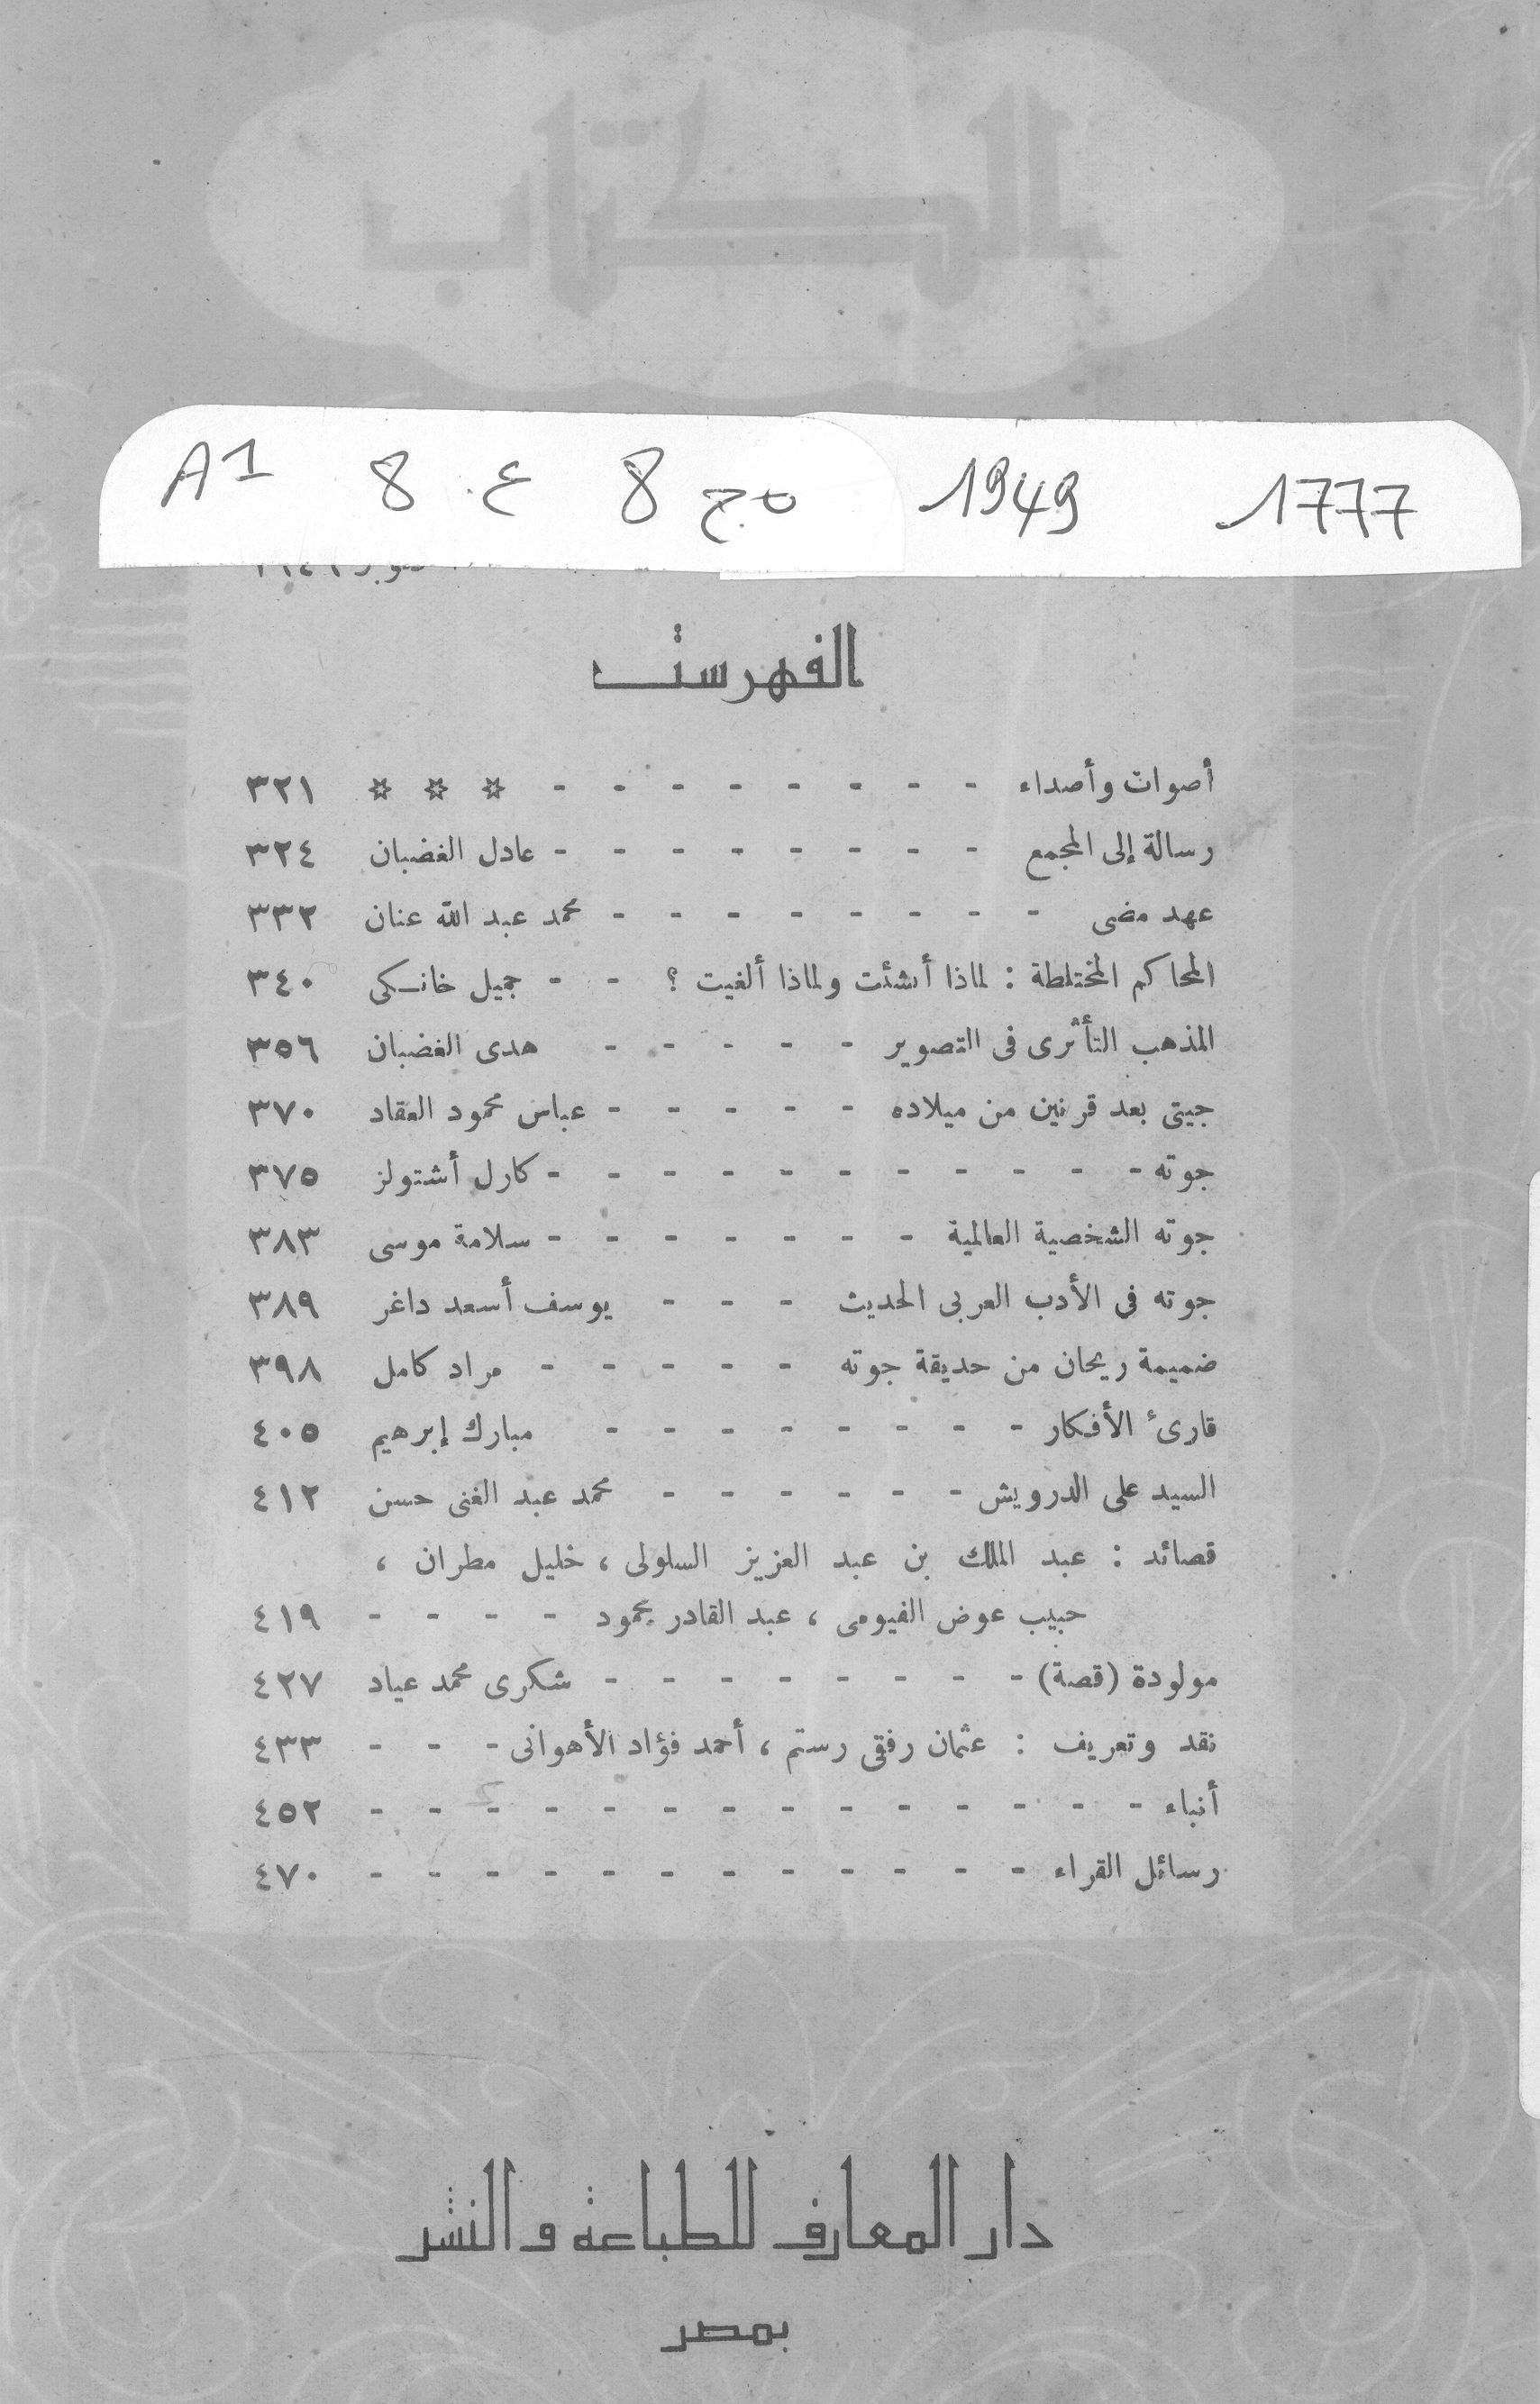 الكتاب
A1 8 ع. 8 مج 1949 1777
الفهرست
أصوات وأصداء - - - - - - - - ✡ ✡ ✡ ٣٢١
رسالة إلى المجمع - - - - - - - - عادل الغضبان ٣٢٤
عهد مضى - - - - - - - - محمد عبد الله عنان ٣٣٢
المحاكم المختلطة : لماذا أنشئت ولماذا ألغيت ؟ - - جميل خانكى ٣٤٠
المذهب التأثرى فى التصوير - - - - - هدى الغضبان ٣٥٦
جيتى بعد قرنين من ميلاده - - - - - عباس محمود العقاد ٣٧٠
جوته - - - - - - - - - - - كارل أشتولز ٣٧٥
جوته الشخصية العالمية - - - - - - - سلامة موسى ٣٨٣
جوته فى الأدب العربى الحديث - - - يوسف أسعد داغر ٣٨٩
ضميمة ريحان من حديقة جوته - - - - - مراد كامل ٣٩٨
قارئ الأفكار - - - - - - - - مبارك إبرهيم ٤٠٥
السيد على الدرويش - - - - - - محمد عبد الغنى حسن ٤١٢
قصائد : عبد الملك بن عبد العزيز السلولى ، خليل مطران ،
حبيب عوض الفيومى ، عبد القادر محمود - - - - ٤١٩
مولودة (قصة) - - - - - - - - شكرى محمد عياد ٤٢٧
نقد وتعريف : عثمان رفقى رستم ، أحمد فؤاد الأهوانى - - - ٤٣٣
أنباء - - - - - - - - - - - - - - ٤٥٢
رسائل القراء - - - - - - - - - - - - ٤٧٠
دار المعارف للطباعة والنشر
بمصر